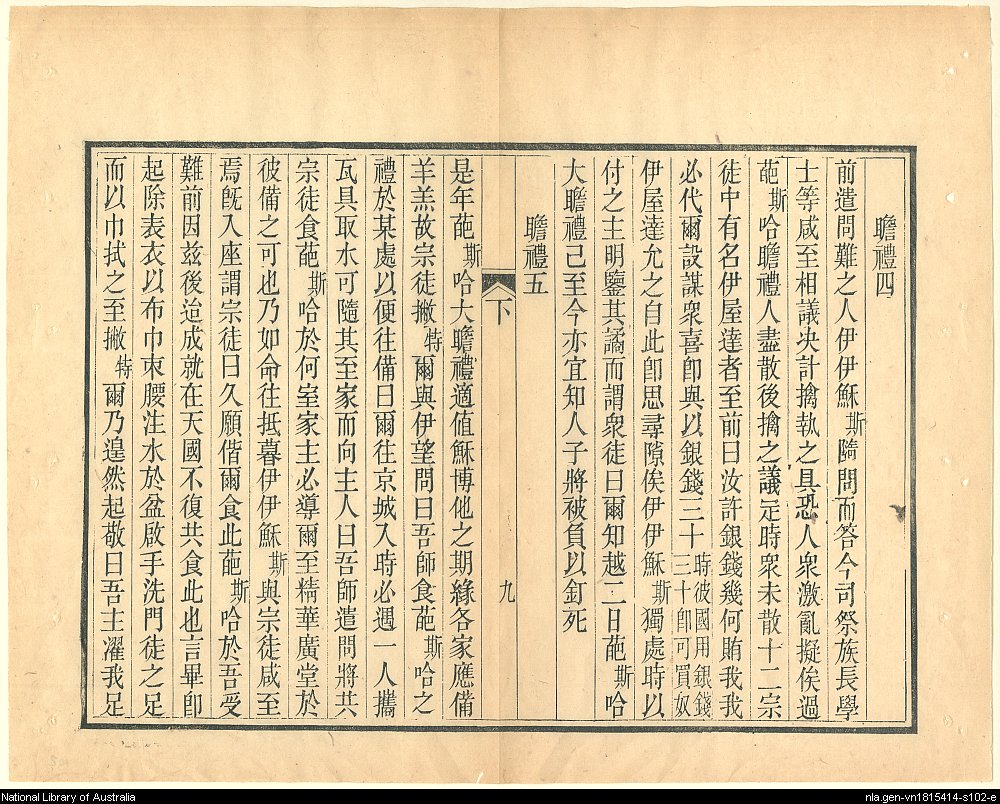 瞻禮四
前遣問難之人伊伊穌斯隨問而答今司祭族長學
士等咸至相議决計擒執之具恐人衆激亂擬俟過
葩斯哈瞻禮人盡散後擒之議定時衆未散十二宗
徒中有名伊屋達者至前曰汝許銀錢幾何賄我我
必代爾設謀衆喜卽與以銀錢三十時彼國用銀錢三十卽可買奴
伊屋達允之自此卽思尋隙俟伊伊穌斯獨處時以
付之主明鑒其譎而謂衆徒曰爾知越二日葩斯哈
大瞻禮已至今亦宜知人子將被負以釘死
瞻禮五
下
九
是年葩斯哈大瞻禮適值穌博他之期緣各家應備
羊羔故宗徒撇特爾與伊望問曰吾師食葩斯哈之
禮於某處以便往備曰爾往京城入時必遇一人攜
瓦具取水可隨其至家而向主人曰吾師遣問將共
宗徒食葩斯哈於何室家主必導爾至精華廣堂於
彼備之可也乃如命往抵暮伊伊穌斯與宗徒咸至
焉旣入座謂宗徒曰久願偕爾食此葩斯哈於吾受
難前因茲後迨成就在天國不復共食此也言畢卽
起除表衣以布巾束腰注水於盆啟手洗門徒之足
而以巾拭之至撇特爾乃遑然起敬曰吾主濯我足
National Library of Australia
nla.gen-vn1815414-s102-e